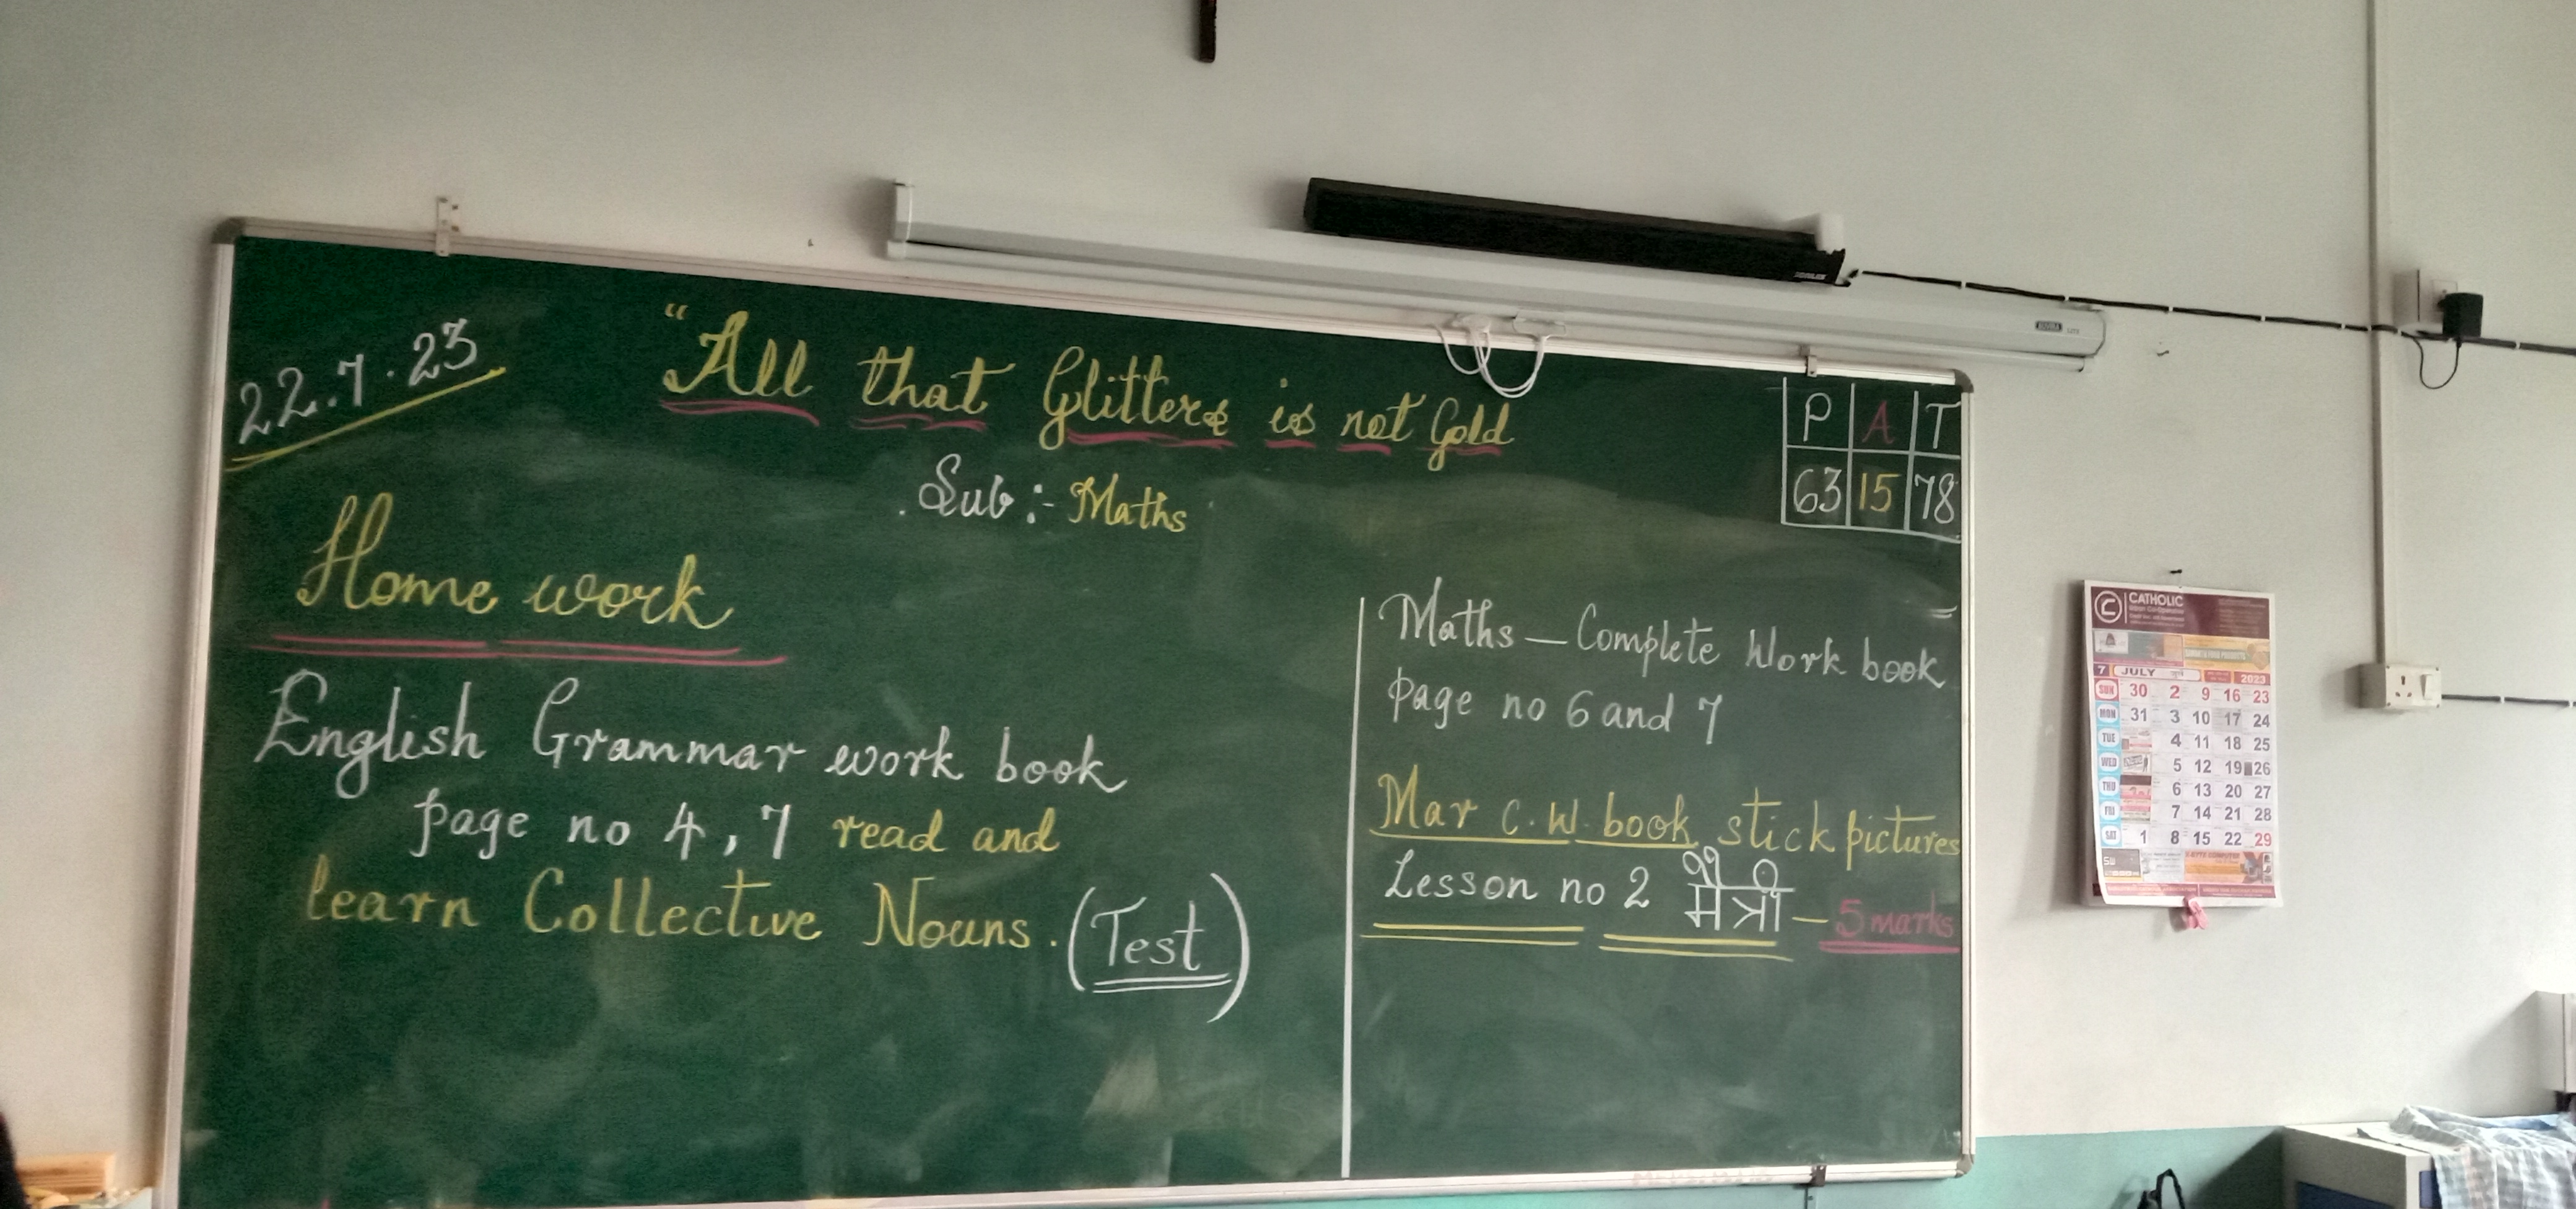 22.7.23
"All that Glitters is not Gold
Sub :- Maths
P A T
63 15 78
Home work
English Grammar work book
page no 4, 7 read and
learn Collective Nouns. (Test)
Maths – Complete Work book
page no 6 and 7
Mar C.W. book stick pictures
Lesson no 2 मैत्री – 5 marks
CATHOLIC
7 JULY 2023
SUN 30 2 9 16 23
MON 31 3 10 17 24
TUE 4 11 18 25
WED 5 12 19 26
THU 6 13 20 27
FRI 7 14 21 28
SAT 1 8 15 22 29